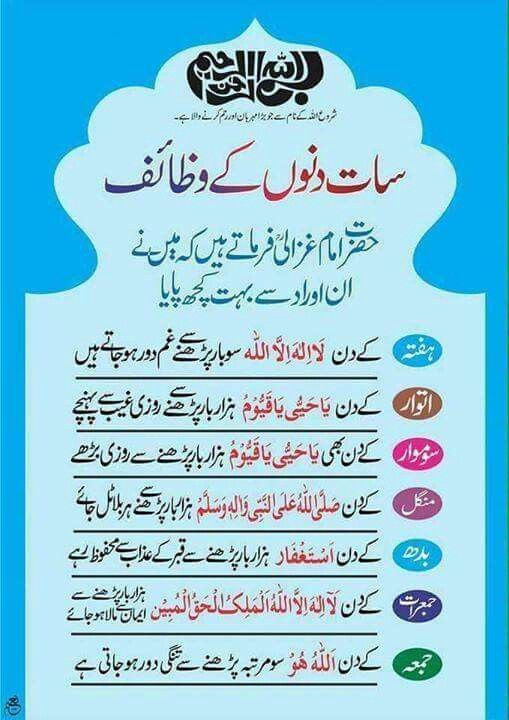 بسم الله الرحمن الرحيم
شروع اللہ کے نام سے جو بڑا مہربان اور رحم کرنے والا ہے۔
سات دنوں کے وظائف
حضرت امام غزالیؒ فرماتے ہیں کہ میں نے
ان اوراد سے بہت کچھ پایا
ہفتہ کے دن لَا اِلٰہَ اِلَّا اللہ سو بار پڑھنے سے غم دور ہو جاتے ہیں
اتوار کے دن یَا حَیُّ یَا قَیُّوْمُ ہزار بار پڑھنے سے روزی غیب سے پہنچے
سوموار کے دن بھی یَا حَیُّ یَا قَیُّوْمُ ہزار بار پڑھنے سے روزی بڑھے
منگل کے دن صَلَّی اللہُ عَلَی النَّبِیِّ وَاٰلِہٖ وَسَلَّمْ ہزار بار پڑھنے سے ہر بلا ٹل جائے
بدھ کے دن اَسْتَغْفَار ہزار بار پڑھنے سے قبر کے عذاب سے محفوظ رہے
جمعرات کے دن لَاۤ اِلٰہَ اِلَّا اللہُ الْمَلِکُ الْحَقُّ الْمُبِیْن ہزار بار پڑھنے سے ایمان سے مالا ہو جائے
جمعہ کے دن اَللہُ ھُوْ سو مرتبہ پڑھنے سے تنگی دور ہو جاتی ہے